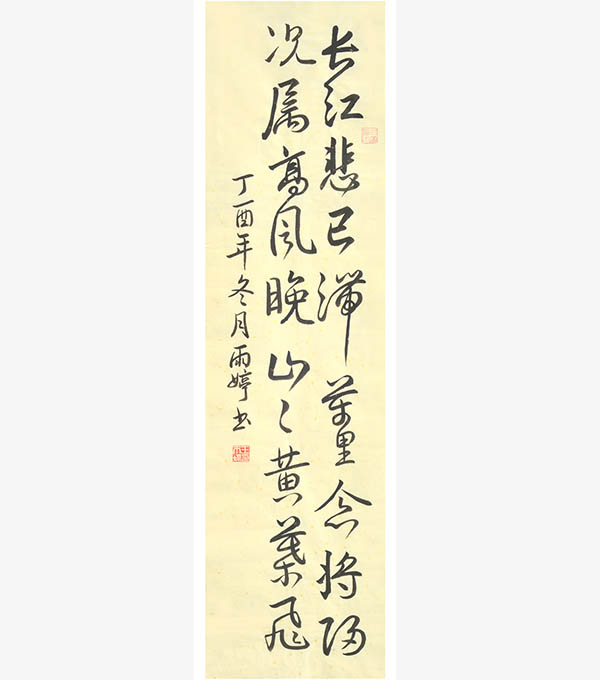 长江悲已滞万里念将归
况属高风晚山〻黄叶飞
丁酉年冬月雨婷书